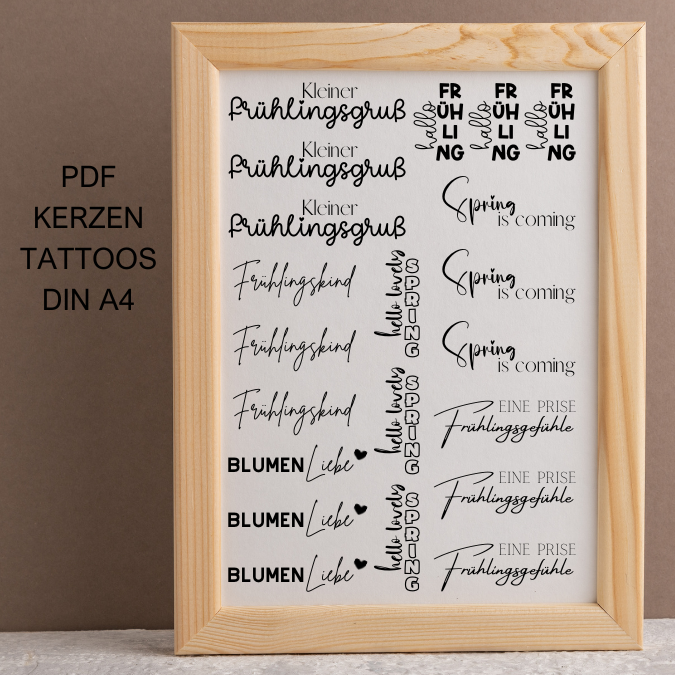 PDF
KERZEN
TATTOOS
DIN A4
Kleiner
Frühlingsgruß
Kleiner
Frühlingsgruß
Kleiner
Frühlingsgruß
hallo
FR
ÜH
LI
NG
hallo
FR
ÜH
LI
NG
hallo
FR
ÜH
LI
NG
Spring
is coming
Spring
is coming
Spring
is coming
Frühlingskind
Frühlingskind
Frühlingskind
hello lovely
SPRING
hello lovely
SPRING
hello lovely
SPRING
BLUMEN Liebe
BLUMEN Liebe
BLUMEN Liebe
EINE PRISE
Frühlingsgefühle
EINE PRISE
Frühlingsgefühle
EINE PRISE
Frühlingsgefühle